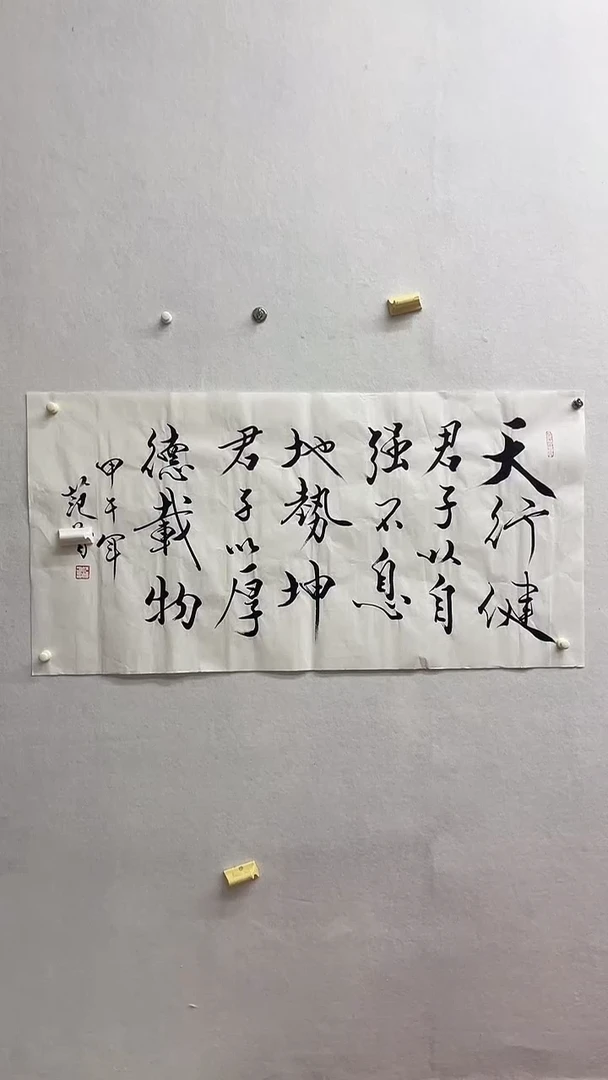 天行健
君子以自
强不息
地勢坤
君子以厚
德載物
甲午年
范